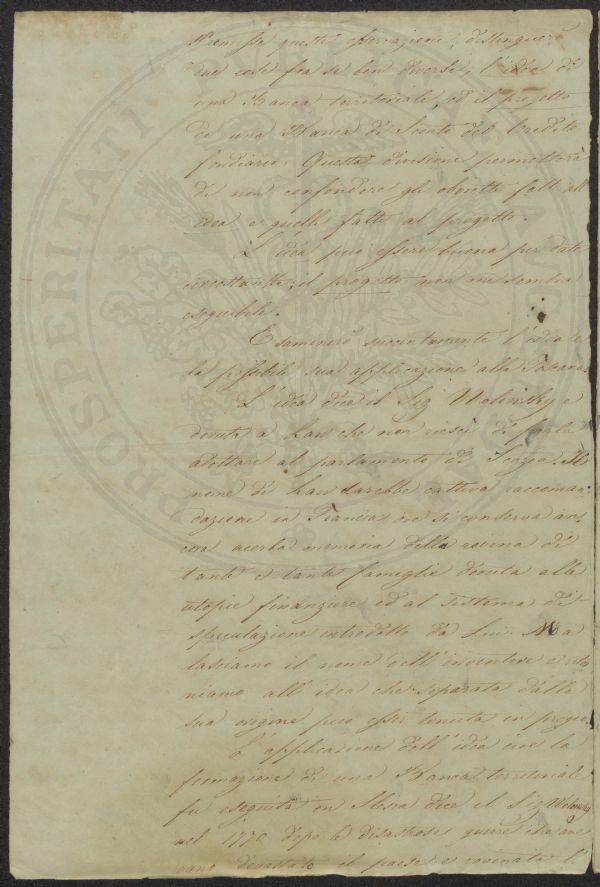 Premesse queste osservazioni, distinguerò
due cose fra se ben diverse, l'idea di
una Banca territoriale, ed il progetto
di una Banca di Sconto del Credito
fondiario. Questa divisione permetterà
di non confondere gli obietti fatti all'
idea e quelli fatti al progetto.
L'idea può essere buona per date
circostanze; il progetto non mi sembra
eseguibile.
Esaminerò succintamente l'idea e
la possibile sua applicazione alla Toscana.
L'idea dice il Sig Wolinsky è
dovuta a Law che non riescì di farla
adottare al parlamento di Scozia. Il
nome di Law sarebbe cattiva raccoman-
dazione in Francia ove si conserva an-
cora acerba memoria della rovina di
tante e tante famiglie dovuta alle
utopie finanziere ed al sistema di
speculazione introdotto da Lui. Ma
lasciamo il nome dell'inventore e ritor
niamo all'idea che separata dalla
sua origine può esser tenuta in pregio.
L'applicazione dell'idea cioè la
formazione di una Banca territoriale
fu eseguita in Slesia dice il Sig Wolinsky
nel 1770 dopo le disastrose guerre che ave
vano devastato il paese e rovinata l'
PROSPERITATI